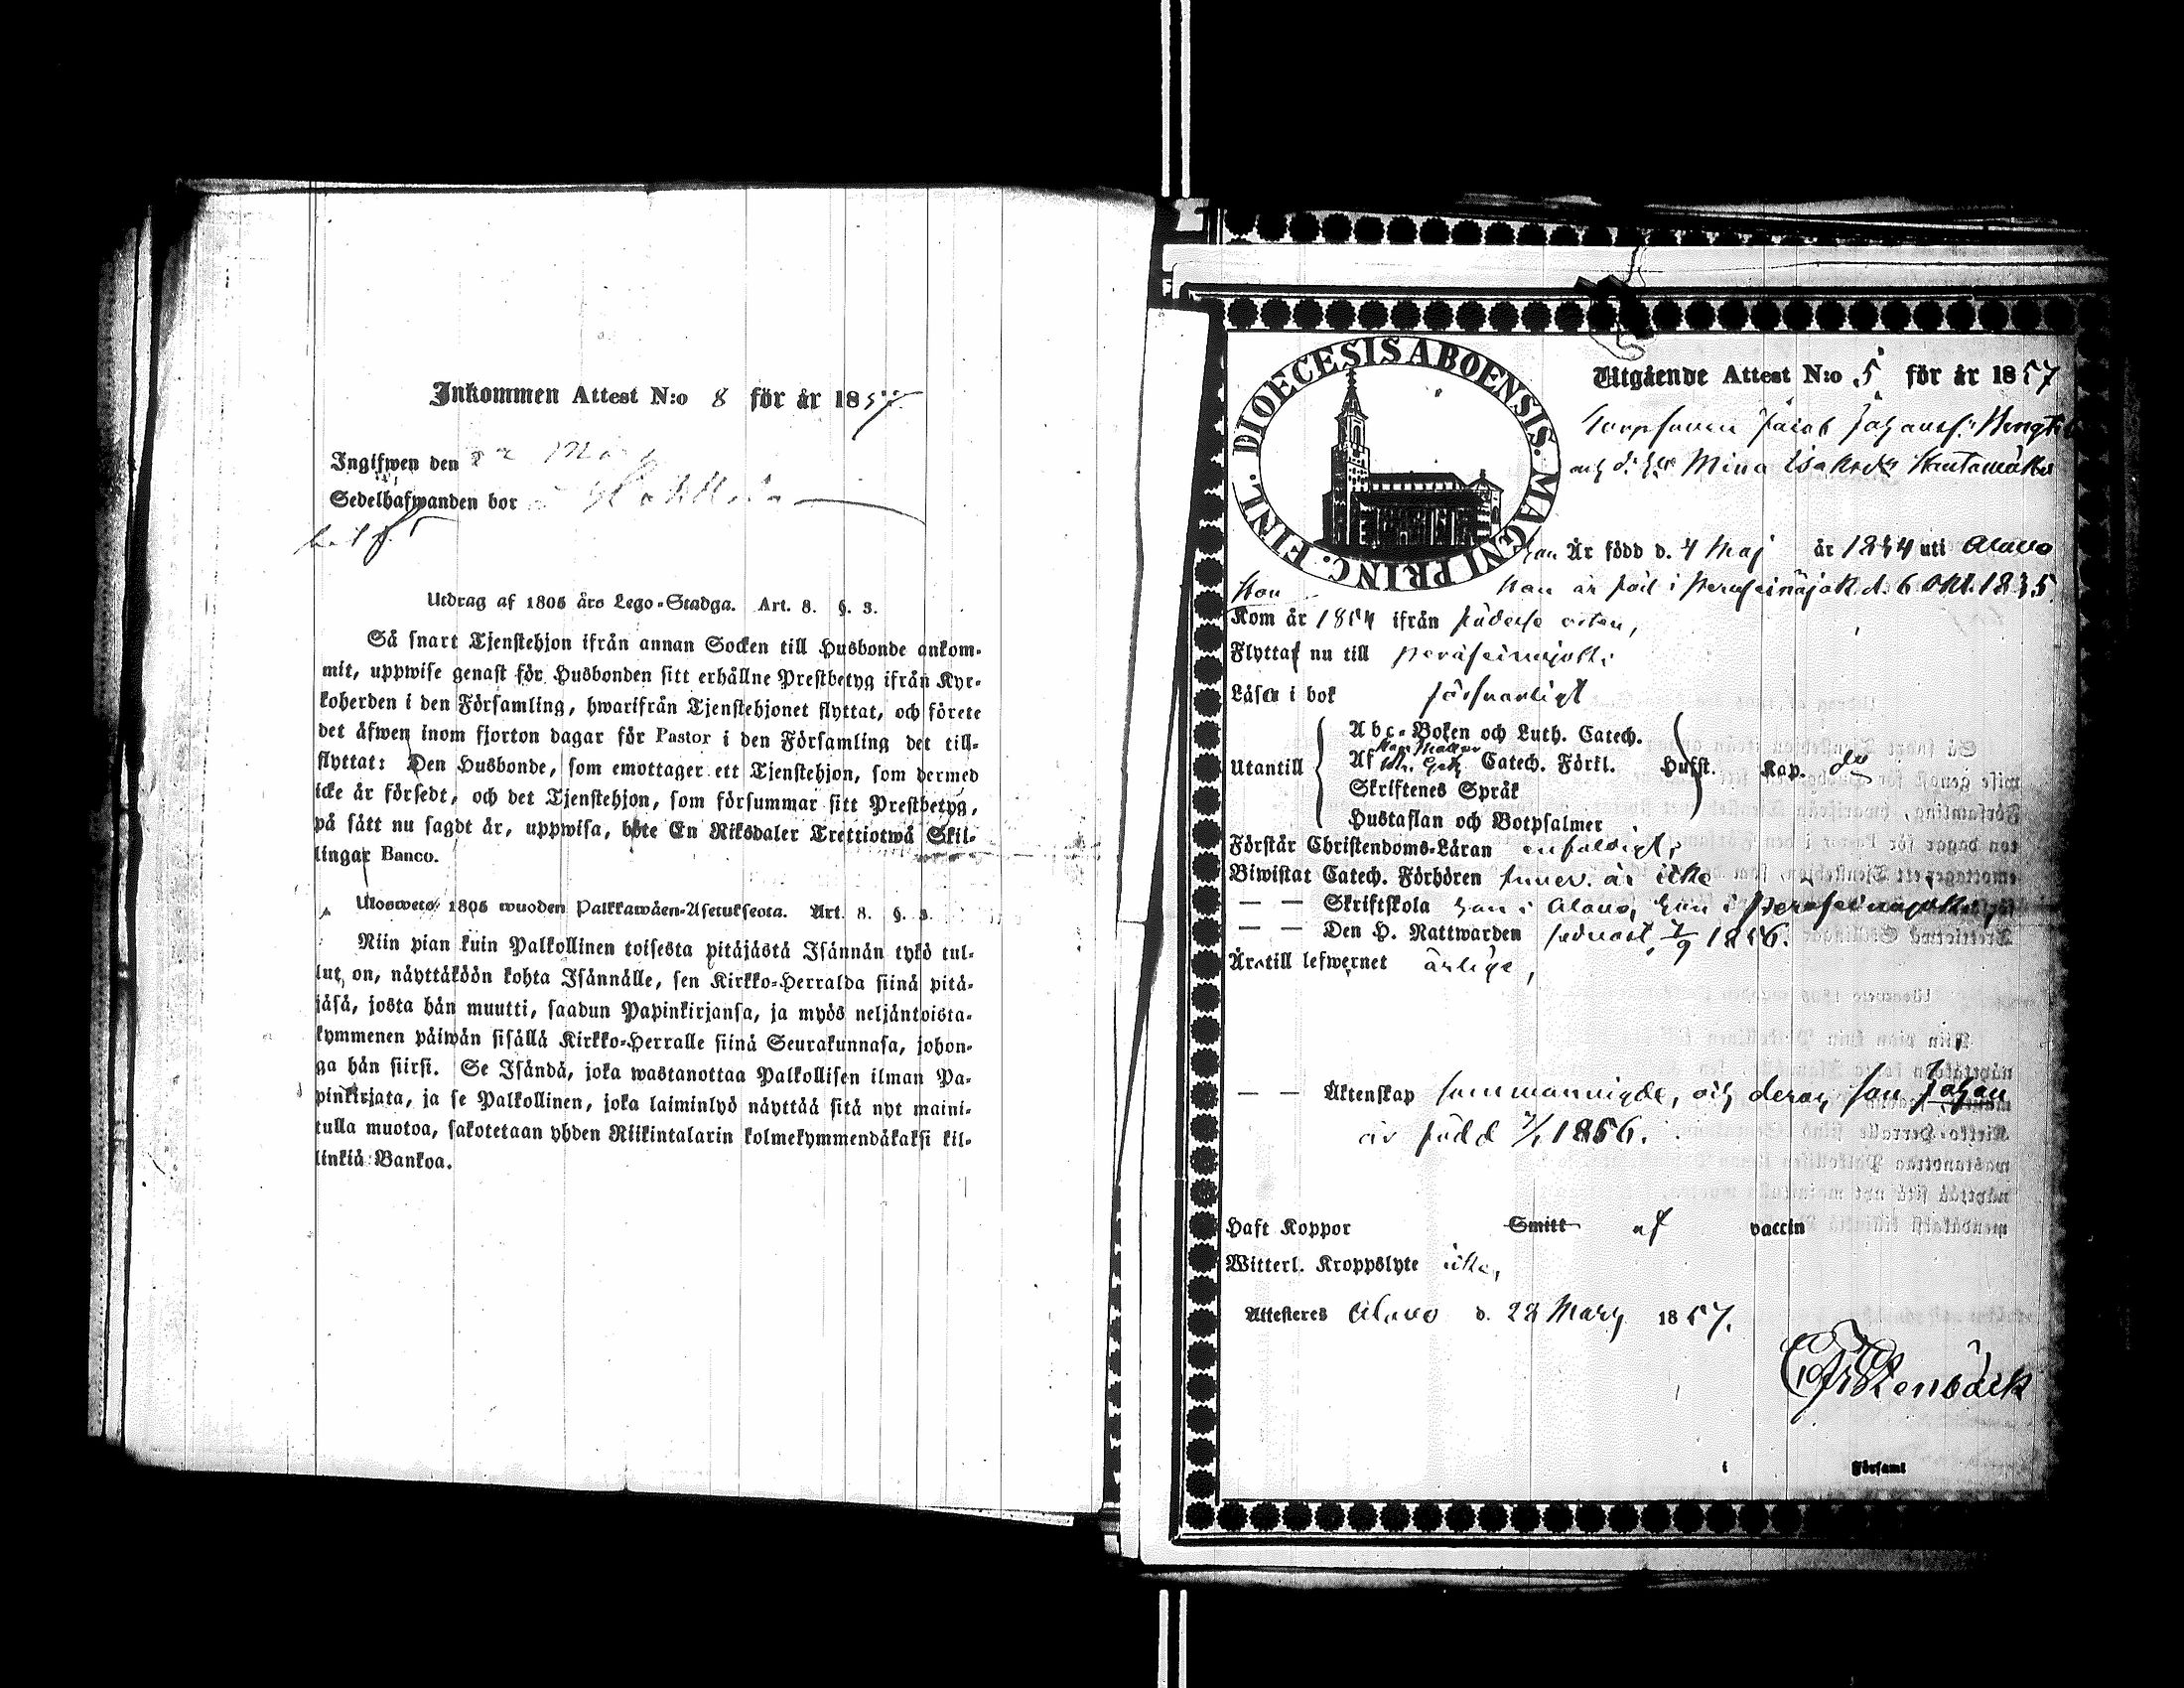 Inkommen Attest N:o 8 för år 1857.
Ingifwen den Mars
Sedelhafwanden bor
Utdrag af 1805 års Lego-Stadga. Art. 8. §. 3.
Så snart Tjenstehjon ifrån annan Socken till Husbonde ankom-
mit, uppwise genast för Husbonden sitt erhållne Prestbetyg ifrån Kyr-
koherden i den Församling, hwarifrån Tjenstehjonet flyttat, och förete
det äfwen inom fjorton dagar för Pastor i den Församling det till-
flyttat: Den Husbonde, som emottager ett Tjenstehjon, som dermed
icke är försedt, och det Tjenstehjon, som försummar sitt Prestbetyg,
på sätt nu sagdt är, uppwisa, böte En Riksdaler Trettiotwå Skil-
lingar Banco.
Ulosweto 1805 wuoden Palkkawäen-Asetuksesta. Art. 8. §. 3.
Niin pian kuin Palkollinen toisesta pitäjästä Isännän tykö tul-
lut on, näyttäköön kohta Isännälle, sen Kirkko-Herralda siinä pitä-
jäsä, josta hän muutti, saadun Papinkirjansa, ja myös neljäntoista-
kymmenen päiwän sisällä Kirkko-Herralle siinä Seurakunnasa, johon-
ga hän siirsi. Se Isändä, joka wastanottaa Palkollisen ilman Pa-
pinkirjata, ja se Palkollinen, joka laiminlyö näyttää sitä nyt maini-
tulla muotoa, sakotetaan yhden Riikintalarin kolmekymmendäkaksi kil-
linkiä Bankoa.
DIOECESIS ABOENSIS. MAGNI PRINC. FINL.
Utgående Attest N:o 5 för år 1857
Jacob Johanss:
Mina Isaksdr
han Är född d. 4 Maj år 1834 uti Alavo
Hon är född i Peräseinäjok d. 6 Okt. 1835
Kom år 1854 ifrån födelse orten,
Flyttaf nu till Peräseinäjoki
Läsa i bok försvarligt
Utantill
Abc-Boken och Luth. Catech.
Af Catech. Förkl. Husst. Kap. do
Skriftenes Språk
Hustaflan och Botpsalmer
Förstår Christendoms-Läran enfaldigt,
Biwistat Catech. Förhören icke
— — Skriftskola han i Alavo, hon i Peräseinäjoki,
— — Den H. Nattwarden sednast 7/9 1856.
Är till lefwernet ärlige,
— — Äktenskap sammanvigde, och deras son Johan
är född 7/1 1856.
Haft Koppor Smitt af vaccin
Witterl. Kroppslyte icke,
Attesteres Alavo d. 28 Mars 1857.
i Församl